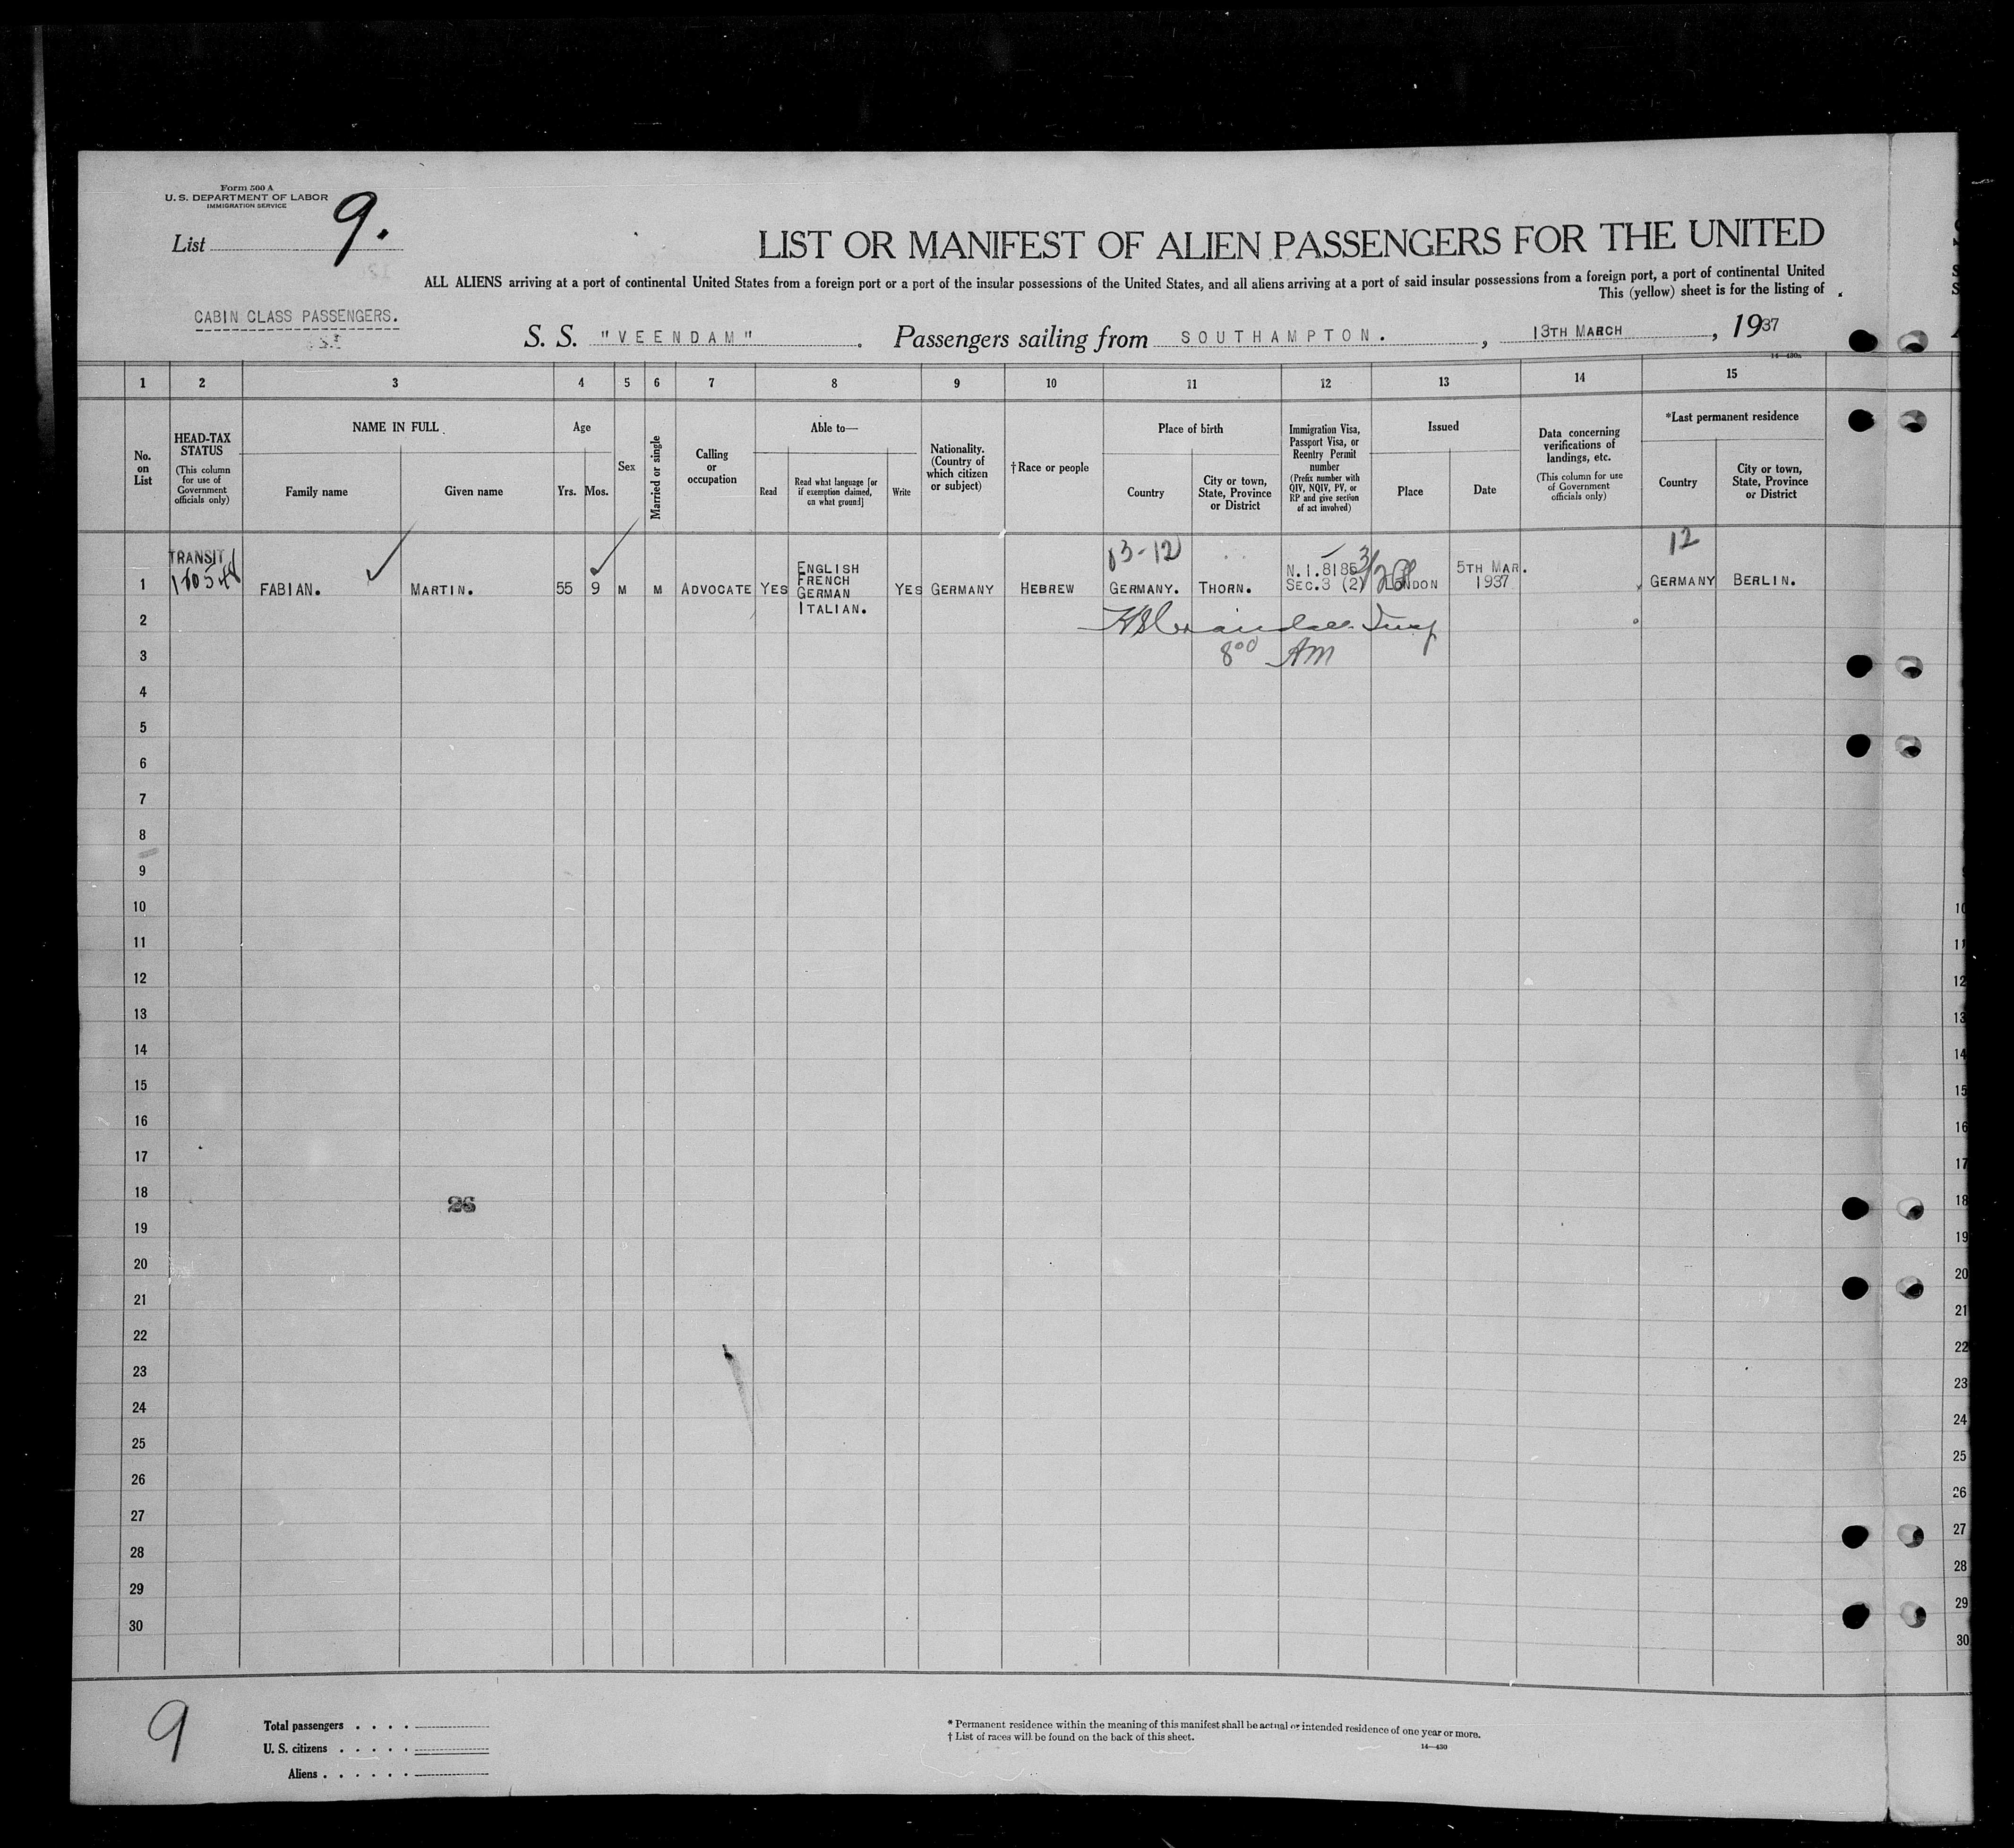 Form 500 A
U. S. DEPARTMENT OF LABOR
IMMIGRATION SERVICE
List 9.
LIST OR MANIFEST OF ALIEN PASSENGERS FOR THE UNITED
ALL ALIENS arriving at a port of continental United States from a foreign port or a port of the insular possessions of the United States, and all aliens arriving at a port of said insular possessions from a foreign port, a port of continental United
This (yellow) sheet is for the listing of
CABIN CLASS PASSENGERS.
S. S. "VEENDAM". Passengers sailing from SOUTHAMPTON., 13TH MARCH, 1937
14—430a
1 2 3 4 5 6 7 8 9 10 11 12 13 14 15
No. on List
HEAD-TAX STATUS
(This column for use of Government officials only)
NAME IN FULL
Family name
Given name
Age
Yrs. Mos.
Sex
Married or single
Calling or occupation
Able to—
Read
Read what language [or if exemption claimed, on what ground]
Write
Nationality. (Country of which citizen or subject)
†Race or people
Place of birth
Country
City or town, State, Province or District
Immigration Visa, Passport Visa, or Reentry Permit number
(Prefix number with QIV, NQIV, PV, or RP and give section of act involved)
Issued
Place
Date
Data concerning verifications of landings, etc.
(This column for use of Government officials only)
*Last permanent residence
Country
City or town, State, Province or District
TRANSIT
12
1 FABIAN. MARTIN. 55 9 M M ADVOCATE YES ENGLISH FRENCH GERMAN ITALIAN. YES GERMANY HEBREW GERMANY. THORN. N.I.8185 SEC.3 (2) LONDON 5TH MAR. 1937 GERMANY BERLIN.
2
3 8⁰⁰ AM
4
5
6
7
8
9
10
11
12
13
14
15
16
17
18
26
19
20
21
22
23
24
25
26
27
28
29
30
10
11
12
13
14
15
16
17
18
19
20
21
22
23
24
25
26
27
28
29
30
9
Total passengers . . . .
U. S. citizens . . . . .
Aliens . . . . . .
* Permanent residence within the meaning of this manifest shall be actual or intended residence of one year or more.
† List of races will be found on the back of this sheet.
14—430